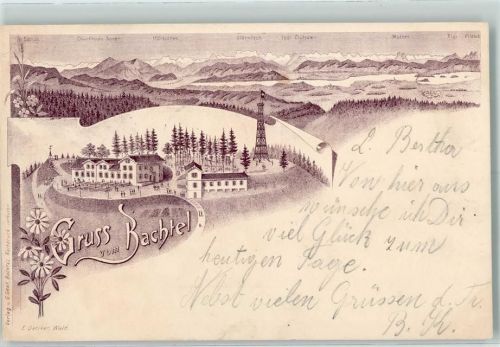 Glärnisch
Gruss
vom Bachtel
L. Bertha
Von hier aus
wünsche ich Dir
viel Glück zum
heutigen Tage.
Nebst vielen Grüssen d. Fr.
B. H.